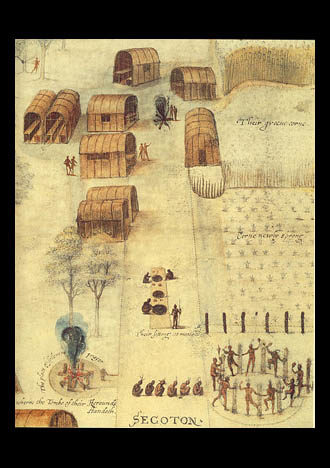 Their greene corne.
Corne newly sprong.
Their sitting at meate.
prayer
wherin the Tombe of their Herounds
standeth.
SECOTON.